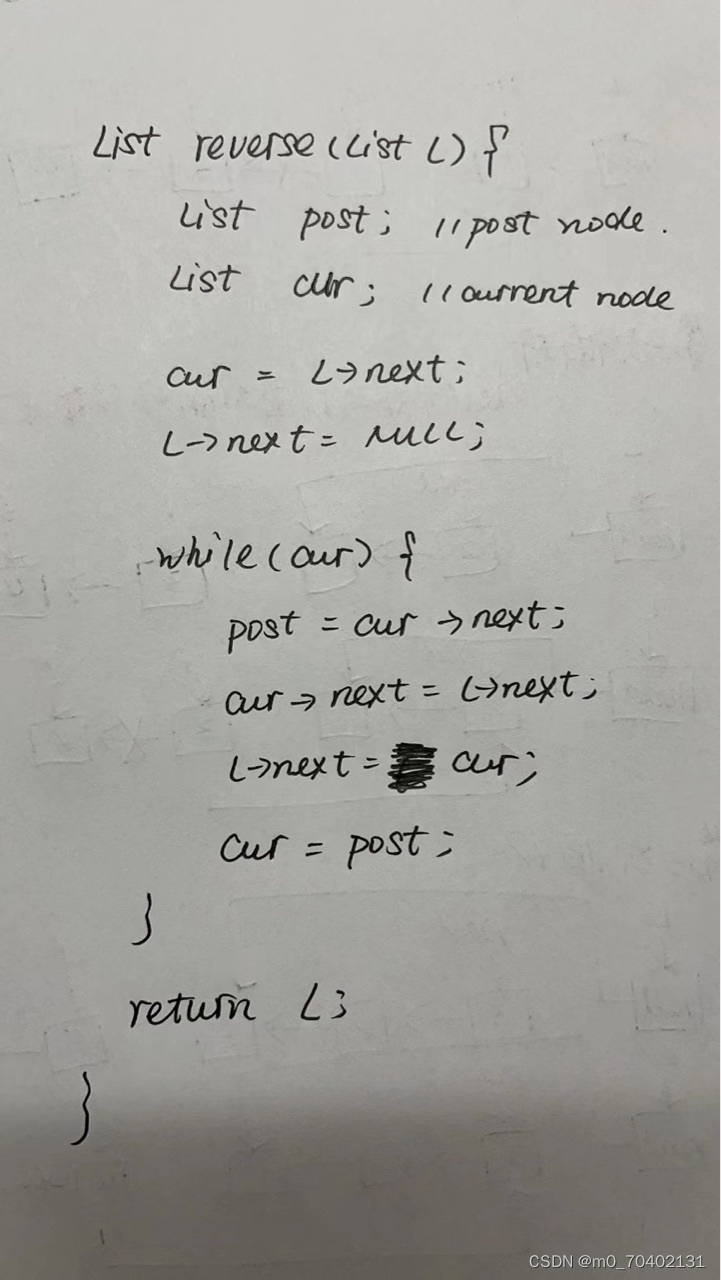 List reverse(List L) {
List post; //post node.
List cur; //current node
cur = L->next;
L->next = NULL;
while(cur) {
post = cur ->next;
cur-> next = L->next;
L->next = cur;
cur = post;
}
return L;
}
CSDN @m0_70402131